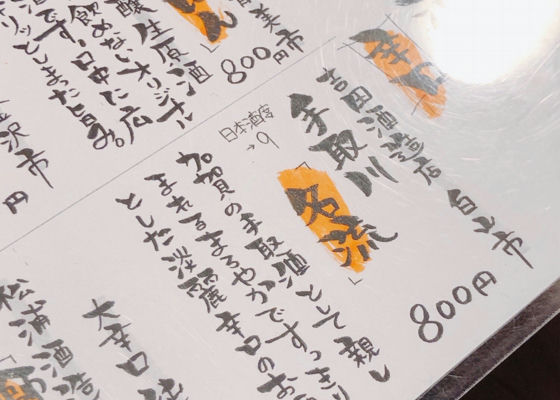 吉田酒造店 白山市
手取川
「名流」
800円
日本酒度
→9
加賀の手取酒として親し
まれるまろやかですっきり
とした淡麗辛口のお
大辛口 純
松浦酒造
美市
800円
醸生原酒
飲めないオリジナル
です。口中に広
リッとしました旨み。
金沢市
円